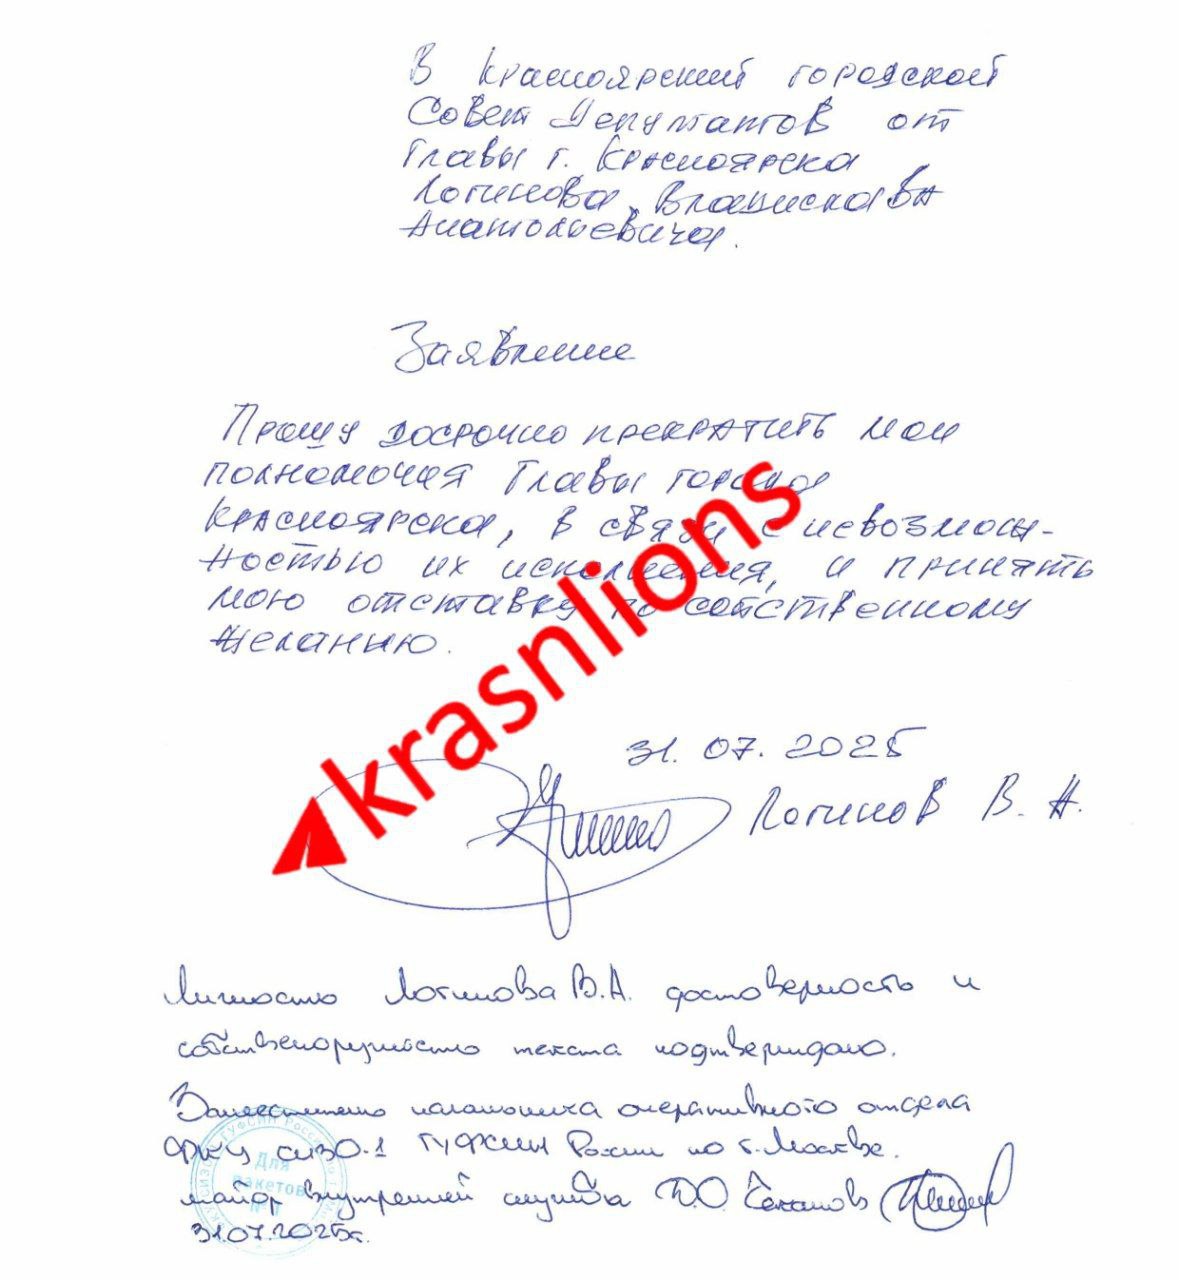 В Красноярский городской
Совет Депутатов от
Главы г. Красноярска
Логинова Владислава
Анатольевича.
Заявление
Прошу досрочно прекратить мои
полномочия Главы города
Красноярска, в связи с невозмож-
ностью их исполнения, и принять
мою отставку по собственному
желанию.
krasnlions
31.07.2025
Логинов В. А.
Личность Логинова В.А. достоверность и
собственоручность текста подтверждаю.
Заместитель начальника оперативного отдела
ФКУ СИЗО-1 ГУФСИН России по г. Москве.
майор внутренней службы
31.07.2025г.
Для
пакетов
№ 1